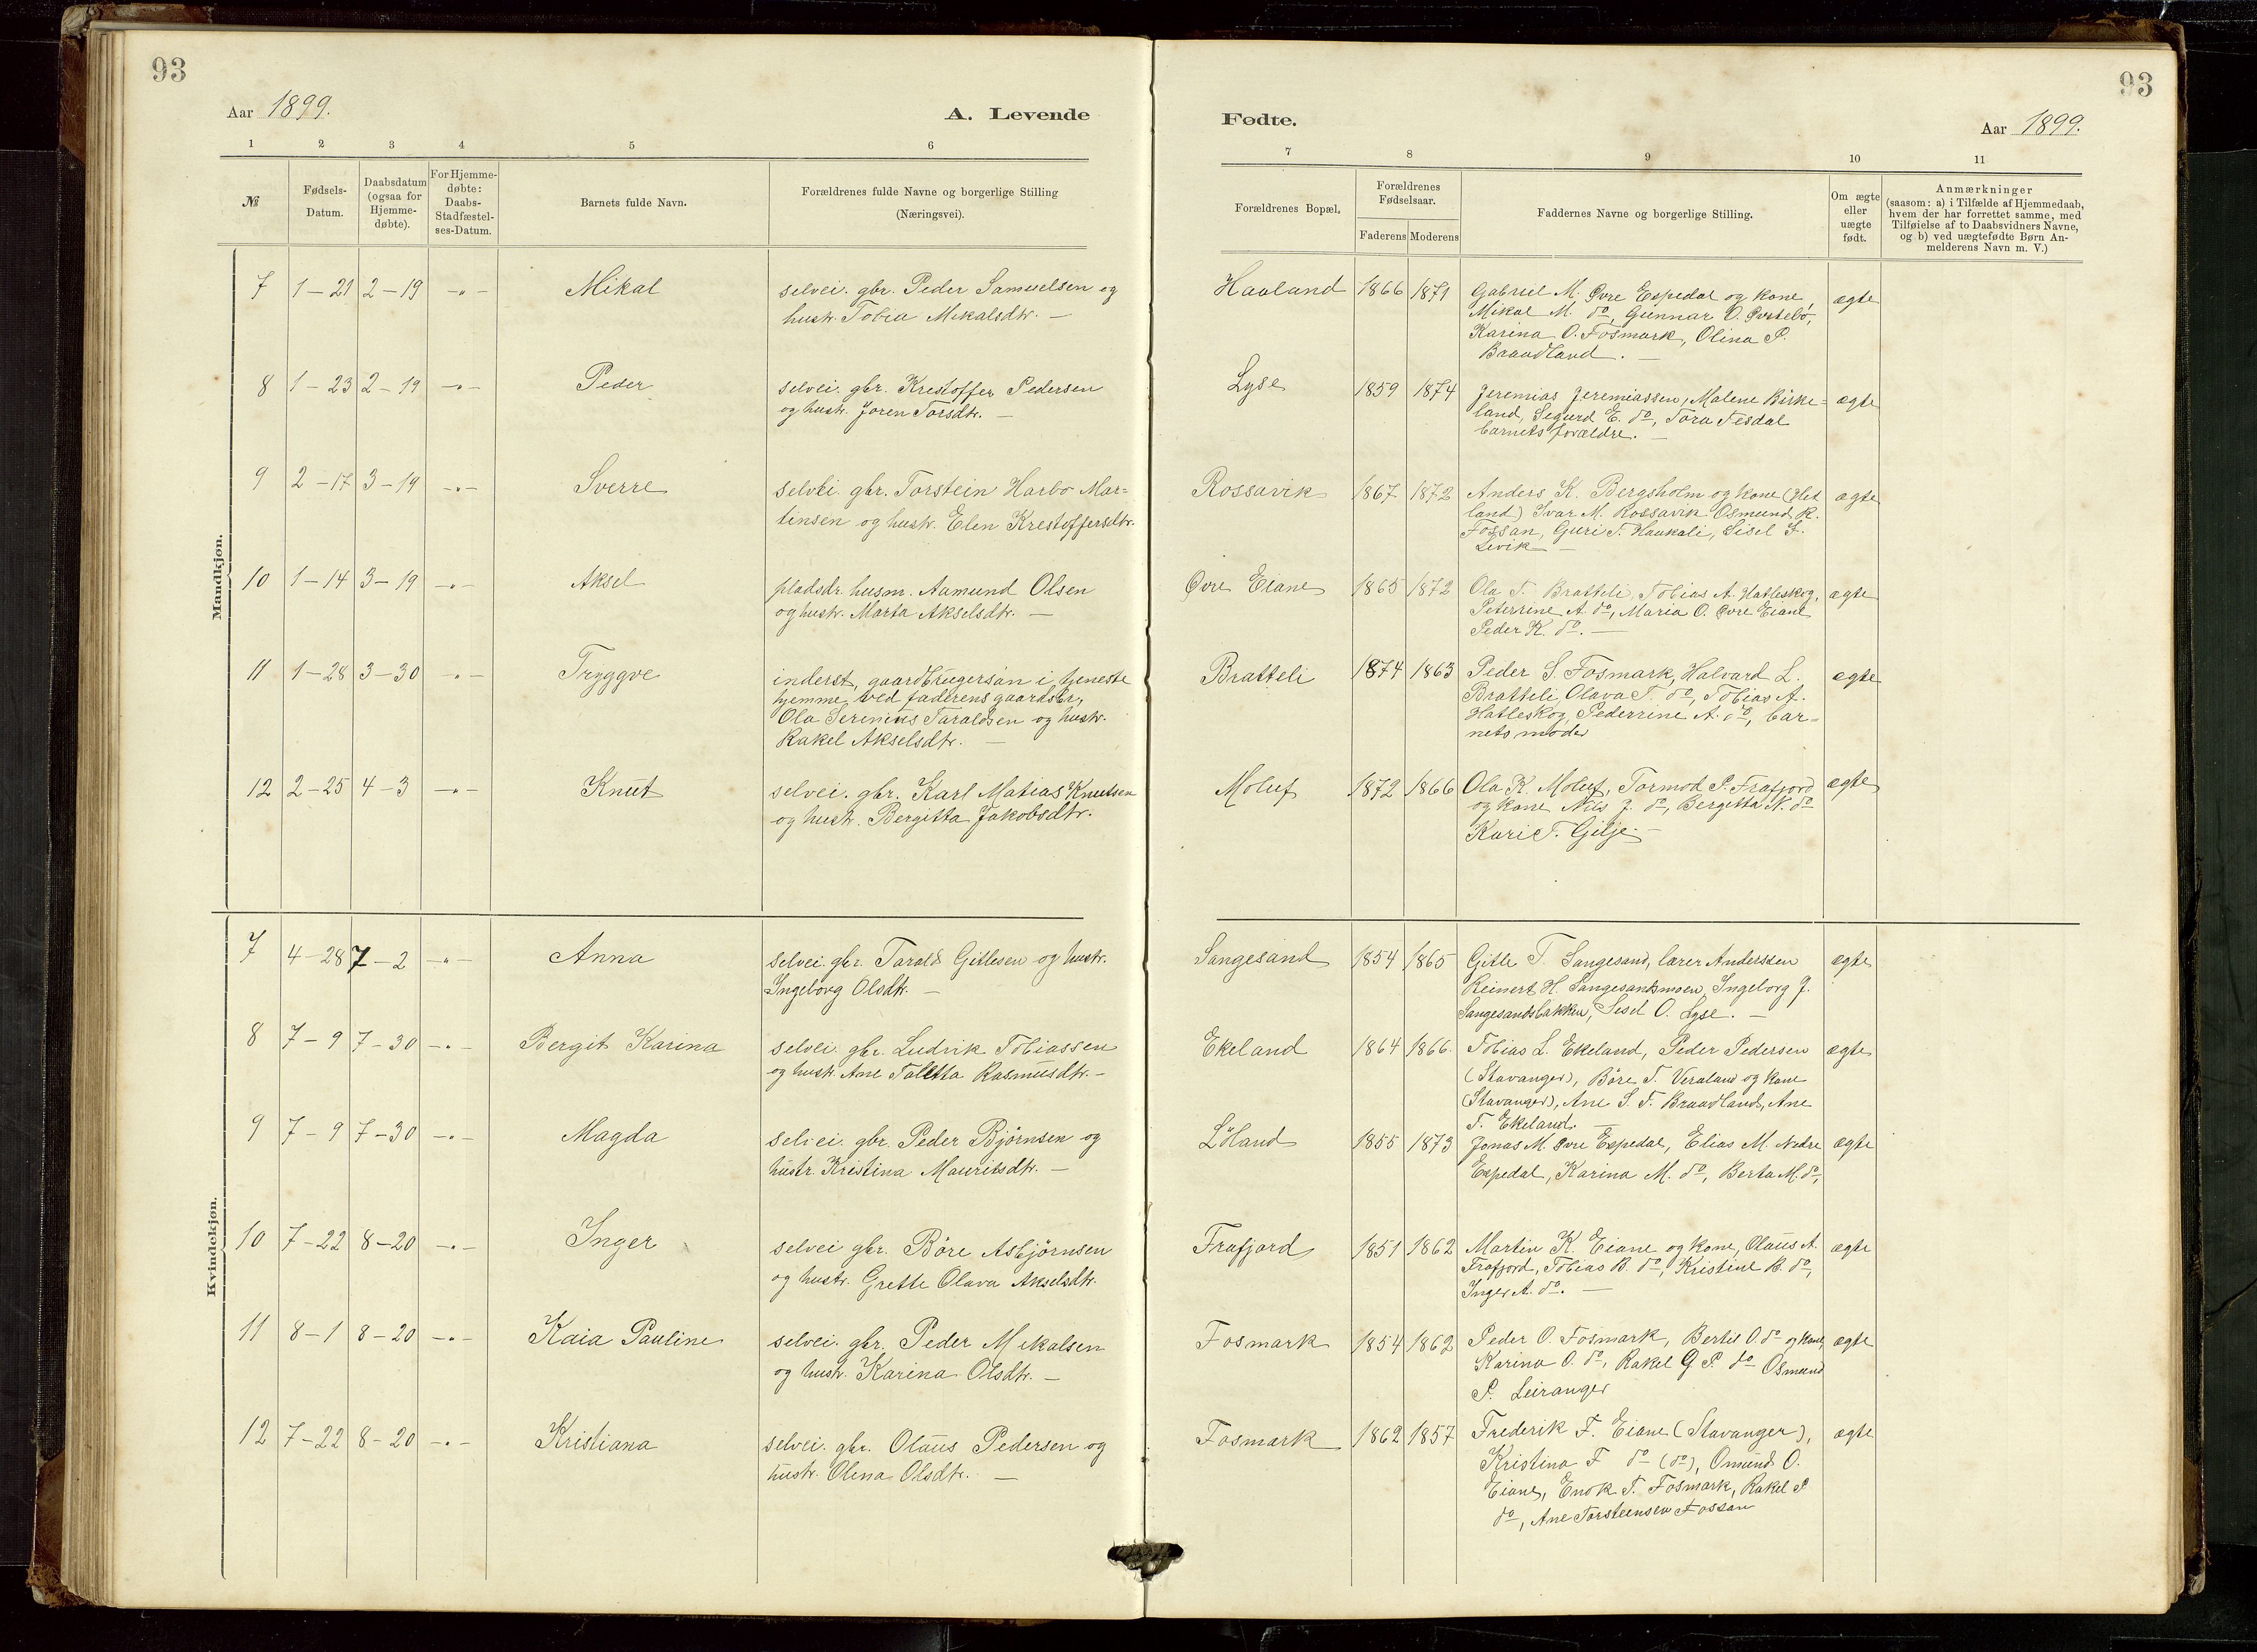 93
93
Aar 1899.
A. Levende
Fødte.
Aar 1899.
1 2 3 4 5 6
7 8 9 10 11
№
Fødsels-
Datum.
Daabsdatum
(ogsaa for
Hjemme-
døbte).
For Hjemme-
døbte:
Daabs-
Stadfæstel-
ses-Datum.
Barnets fulde Navn.
Forældrenes fulde Navne og borgerlige Stilling
(Næringsvei).
Forældrenes Bopæl.
Forældrenes
Fødselsaar.
Faderens Moderens
Faddernes Navne og borgerlige Stilling.
Om ægte
eller
uægte
født.
Anmærkninger
(saasom: a) i Tilfælde af Hjemmedaab,
hvem der har forrettet samme, med
Tilføielse af to Daabsvidners Navne,
og b) ved uægtefødte Børn An-
melderens Navn m. V.)
Mandkjøn.
7 1-21 2-19 -„- Mikal
selvei. gbr. Peder Samuelsen og
hustr. Tobia Mikalsdtr. —
Haaland 1866 1871
Gabriel M. Øvre Espedal og kone,
Mikal M. do, Gunnar O. Øvstebö,
Karina O. Fosmark, Olina P.
Braadland. —
ægte
8 1-23 2-19 -„- Peder
selvei. gbr. Krestoffer Pedersen
og hustr. Joren Torsdtr. —
Lyse 1859 1874
Jeremias Jeremiassen, Malene Birke-
land, Segurd E. do, Tora Tesdal
barnets forældre. —
ægte
9 2-17 3-19 -„- Sverre
selvei. gbr. Torstein Harbo Mar-
tinsen og hustr. Elen Krestoffersdtr.
Rossavik 1867 1872
Anders K. Bergsholm og kone (Het
land) Ivar M. Rossavik Osmund R.
Fossan, Guri T. Haukali, Sisel F.
Levik —
ægte
10 1-14 3-19 -„- Aksel
pladsdr. husm. Aamund Olsen
og hustr. Marta Akselsdtr. —
Øvre Eiane 1865 1872
Ola T. Bratteli, Tobias A. Hatleskog,
Peterrine A. do, Maria O. Øvre Eiane
Peder K. do. —
ægte
11 1-28 3-30 -„- Tryggve
inderst, gaardbrugersøn i tjeneste
hjemme ved faderens gaardsbr,
Ola Serenius Taraldsen og hustr.
Rakel Akselsdtr. —
Bratteli 1874 1863
Peder S. Fosmark, Halvard L.
Bratteli, Olava T. do, Tobias A.
Hatleskog, Pederrine A. do, bar-
nets moder
ægte
12 2-25 4-3 -„- Knut
selvei. gbr. Karl Matias Knutsen
og hustr. Bergitta Jakobsdtr.
Moluf 1872 1866
Ola K. Moluf, Tormod P. Frafjord
og kone Nils J. do, Bergitta N. do
Kari T. Gilje. —
ægte
Kvindekjøn.
7 4-28 7-2 -„- Anna
selvei. gbr. Tarald Gitlesen og hustr.
Ingeborg Olsdtr. —
Sangesand 1854 1865
Gitle T. Sangesand, lærer Anderssen
Reinert H. Sangesandsmoen, Ingeborg J.
Sangesandsbakken, Sisel O. Lyse. —
ægte
8 7-9 7-30 -„- Bergit Karina
selvei. gbr. Ludvik Tobiassen
og hustr. Ane Taletta Rasmusdtr. -
Ekeland 1864 1866.
Tobias L. Ekeland, Peder Pedersen
(Stavanger), Böre T. Veraland og kone
(Stavanger), Ane S. T. Braadland, Ane
T. Ekeland. —
ægte
9 7-9 7-30 -„- Magda
selvei. gbr. Peder Bjørnsen og
hustr. Kristina Mauritsdtr. —
Löland 1855 1873
Jonas M. Øvre Espedal, Elias M. Nedre
Espedal, Karina M. do, Berta M. do,
ægte
10 7-22 8-20 -„- Inger
selvei gbr. Böre Asbjørnsen
og hustr. Grette Olava Akselsdtr.
Frafjord 1851 1862
Martin K. Eiane og kone, Olaus A.
Frafjord, Tobias B. do, Kristine B. do,
Inger A. do. —
ægte
11 8-1 8-20 -„- Kaia Pauline
selvei. gbr. Peder Mikalsen
og hustr. Karina Olsdtr. —
Fosmark 1854 1862
Peder O. Fosmark, Bertil O. do og kone,
Karina O. do, Rakel G P. do Osmund
P. Leiranger
ægte
12 7-22 8-20 -„- Kristiana
selvei. gbr. Olaus Pedersen og
hustr. Olena Olsdtr. —
Fosmark 1862 1857
Frederik F. Eiane (Stavanger),
Kristina F do (do), Omund O.
Eiane, Enok T. Fosmark, Rakel P
do, Ane Torsteensen Fossan
ægte